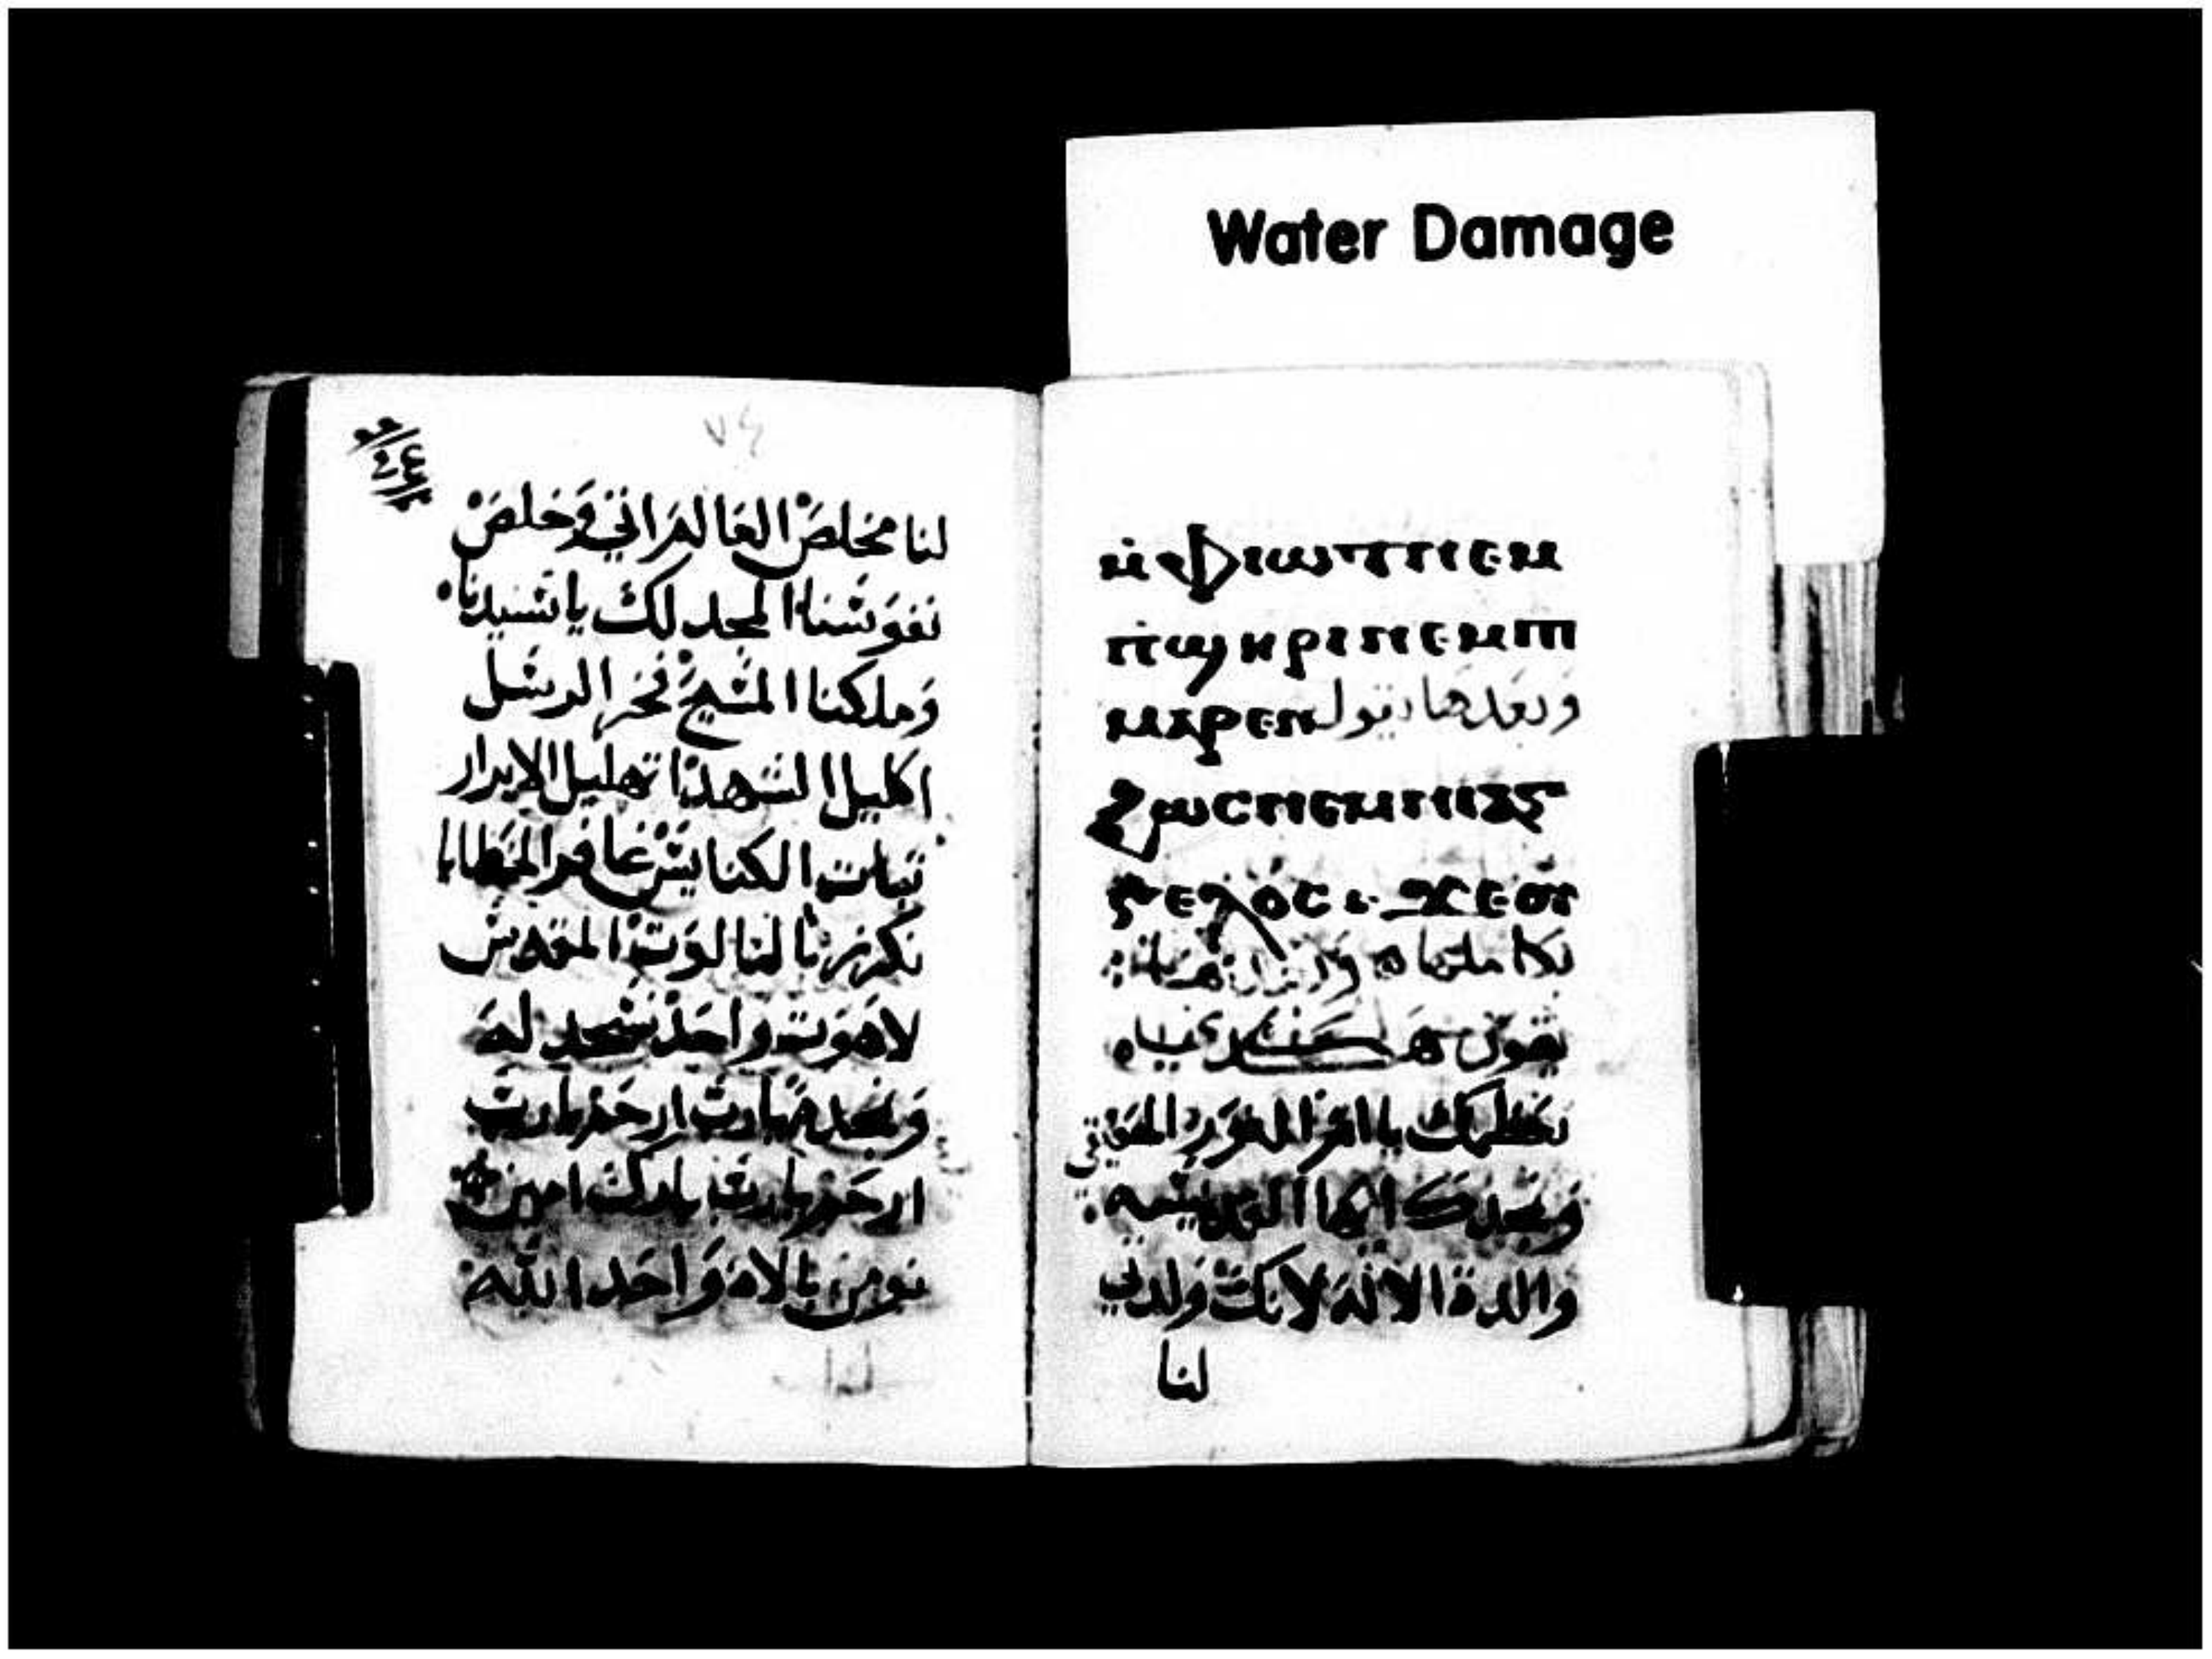 Water Damage
ⲙ̀ⲫⲓⲱⲧ ⲛⲉⲙ
ⲡ̀ϣⲏⲣⲓ ⲛⲉⲙ ⲡⲓ
وبعدها يقول ⲙⲁⲣⲉⲛ
ϩⲱⲥ ⲛⲉⲙ ⲛⲓⲁⲅ
ⲅⲉⲗⲟⲥ ϫⲉ
بكاملها
يقول هكذي
نعظمك يا ام النور الحقيقي
ونمجدك ايتها القديسه
والدة الاله لانك ولدتي
لنا
٢٤
٧٤
لنا مخلص العالم اتي وخلص
نفوسنا المجد لك يا سيدنا
وملكنا المسيح فخر الرسل
اكليل الشهدا تهليل الابرار
تبات الكنايس غافر الخطايا
نكرز بالتالوت المقدس
لاهوت واحد نسجد له
ونمجده يارب ارحم يارب
ارحم يارب بارك امين
نومن بالاه واحد الله